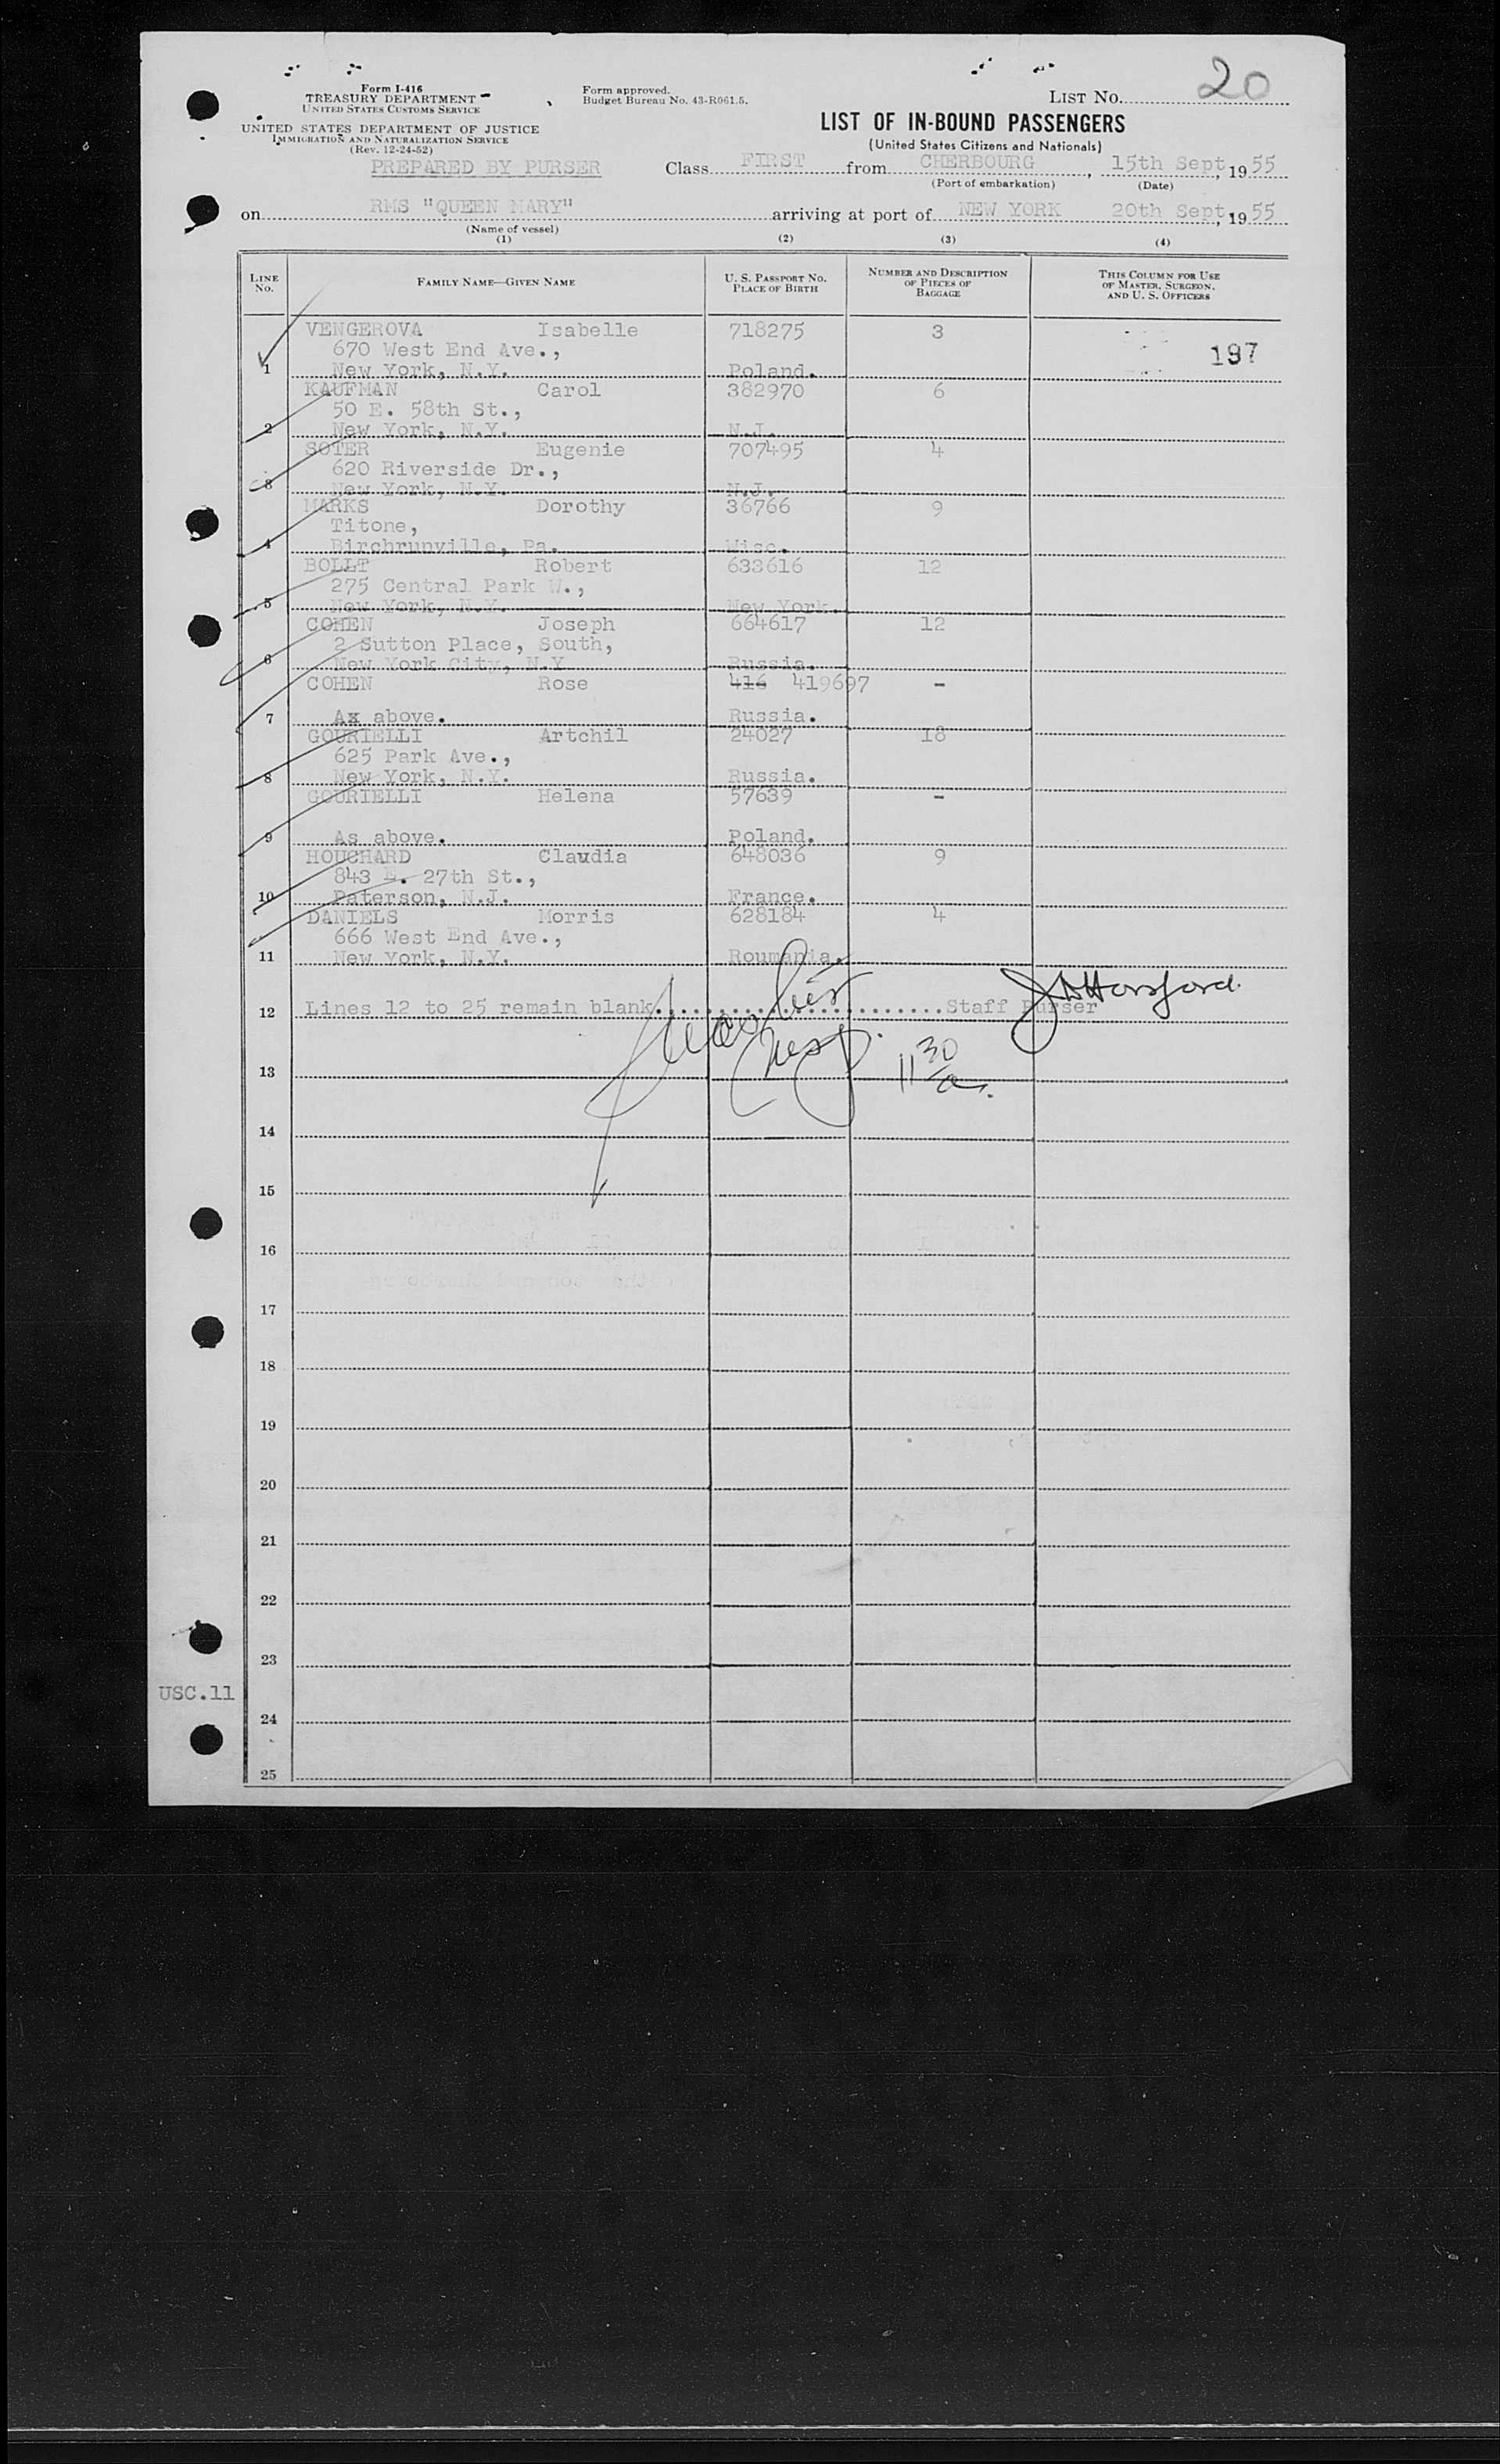 Form I-416
TREASURY DEPARTMENT
UNITED STATES CUSTOMS SERVICE
UNITED STATES DEPARTMENT OF JUSTICE
IMMIGRATION AND NATURALIZATION SERVICE
(Rev. 12-24-52)
PREPARED BY PURSER
Form approved.
Budget Bureau No. 43-R061.5.
LIST NO. 20
LIST OF IN-BOUND PASSENGERS
(United States Citizens and Nationals)
Class FIRST from CHERBOURG, 15th Sept, 1955
(Port of embarkation) (Date)
on RMS "QUEEN MARY" arriving at port of NEW YORK 20th Sept, 1955
(Name of vessel)
(1) (2) (3) (4)
LINE NO. FAMILY NAME—GIVEN NAME U. S. PASSPORT NO. PLACE OF BIRTH NUMBER AND DESCRIPTION OF PIECES OF BAGGAGE THIS COLUMN FOR USE OF MASTER, SURGEON, AND U. S. OFFICERS
VENGEROVA Isabelle 718275 3
670 West End Ave., 197
1 New York, N.Y. Poland.
KAUFMAN Carol 382970 6
50 E. 58th St.,
2 New York, N.Y. N.J.
SOTER Eugenie 707495 4
620 Riverside Dr.,
3 New York, N.Y. N.J.
MARKS Dorothy 36766 9
Titone,
4 Birchrunville, Pa. Wisc.
BOLLT Robert 633616 12
275 Central Park W.,
5 New York, N.Y. New York.
COHEN Joseph 664617 12
2 Sutton Place, South,
6 New York City, N.Y Russia.
COHEN Rose 416 419697 -
7 Ax above. Russia.
GOURIELLI Artchil 24027 18
625 Park Ave.,
8 New York, N.Y. Russia.
GOURIELLI Helena 57639 -
9 As above. Poland.
HOUCHARD Claudia 648036 9
843 E. 27th St.,
10 Paterson, N.J. France.
DANIELS Morris 628184 4
666 West End Ave.,
11 New York, N.Y. Roumania.
12 Lines 12 to 25 remain blank..........................Staff Purser
11 30 a.
13
14
15
16
17
18
19
20
21
22
23
USC.11
24
25